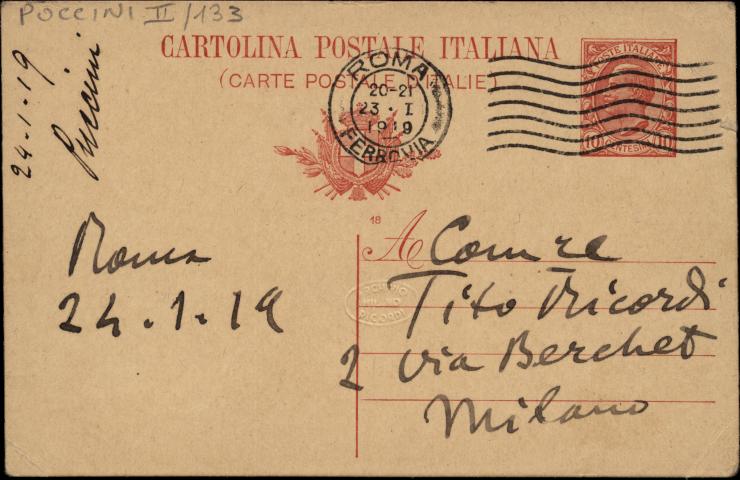 PUCCINI II/133
24-1-19
Puccini
CARTOLINA POSTALE ITALIANA
(CARTE POSTALE D'ITALIE)
ROMA
20-21
23 · I
1919
FERROVIA
POSTE ITALIANE
10 CENTESIMI 10
18
Roma
24.1.19
A Comre
Tito Ricordi
2 via Berchet
Milano
ARCHIVIO
RICORDI